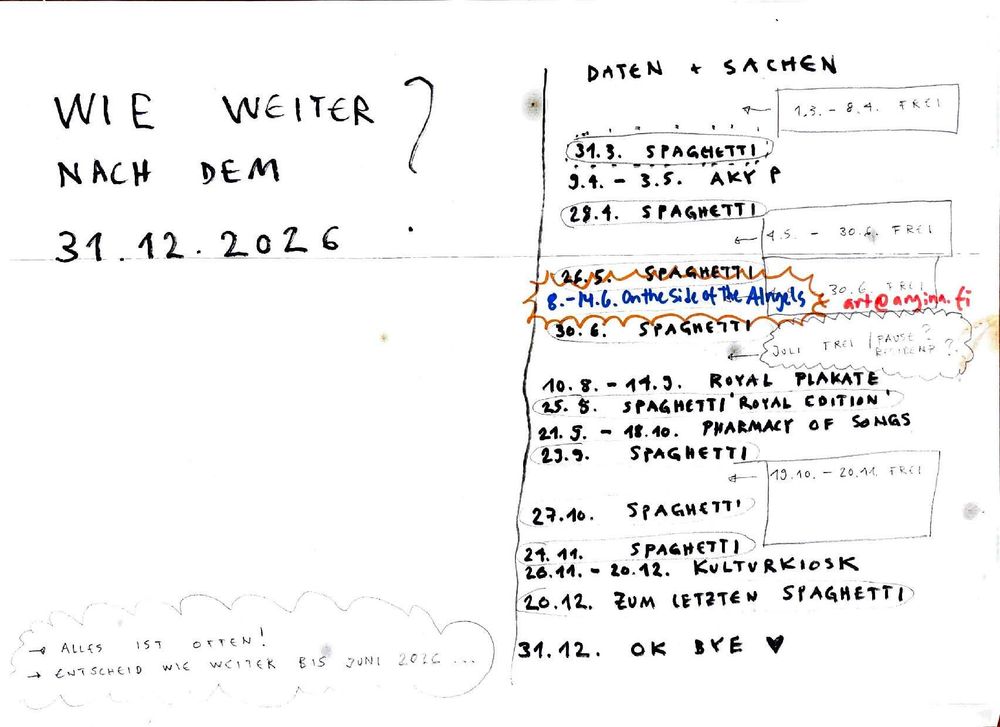 WIE WEITER
NACH DEM
31.12.2026 ?
→ ALLES IST OFFEN!
→ ENTSCHEID WIE WEITER BIS JUNI 2026 ...
DATEN + SACHEN
← 1.3. – 8.4. FREI
31.3. SPAGHETTI
9.4. – 3.5. AKY P
28.4. SPAGHETTI
← 4.5. – 30.6. FREI
26.5. SPAGHETTI
8.–14.6. On the Side of the A(i)ngels
30.6. FREI
art@angina.fi
30.6. SPAGHETTI
← JULI FREI / PAUSE?
?
10.8. – 14.9. ROYAL PLAKATE
25.8. SPAGHETTI 'ROYAL EDITION'
21.9. – 18.10. PHARMACY OF SONGS
29.9. SPAGHETTI
← 19.10. – 20.11. FREI
27.10. SPAGHETTI
24.11. SPAGHETTI
26.11. – 20.12. KULTURKIOSK
20.12. ZUM LETZTEN SPAGHETTI
31.12. OK BYE ♥